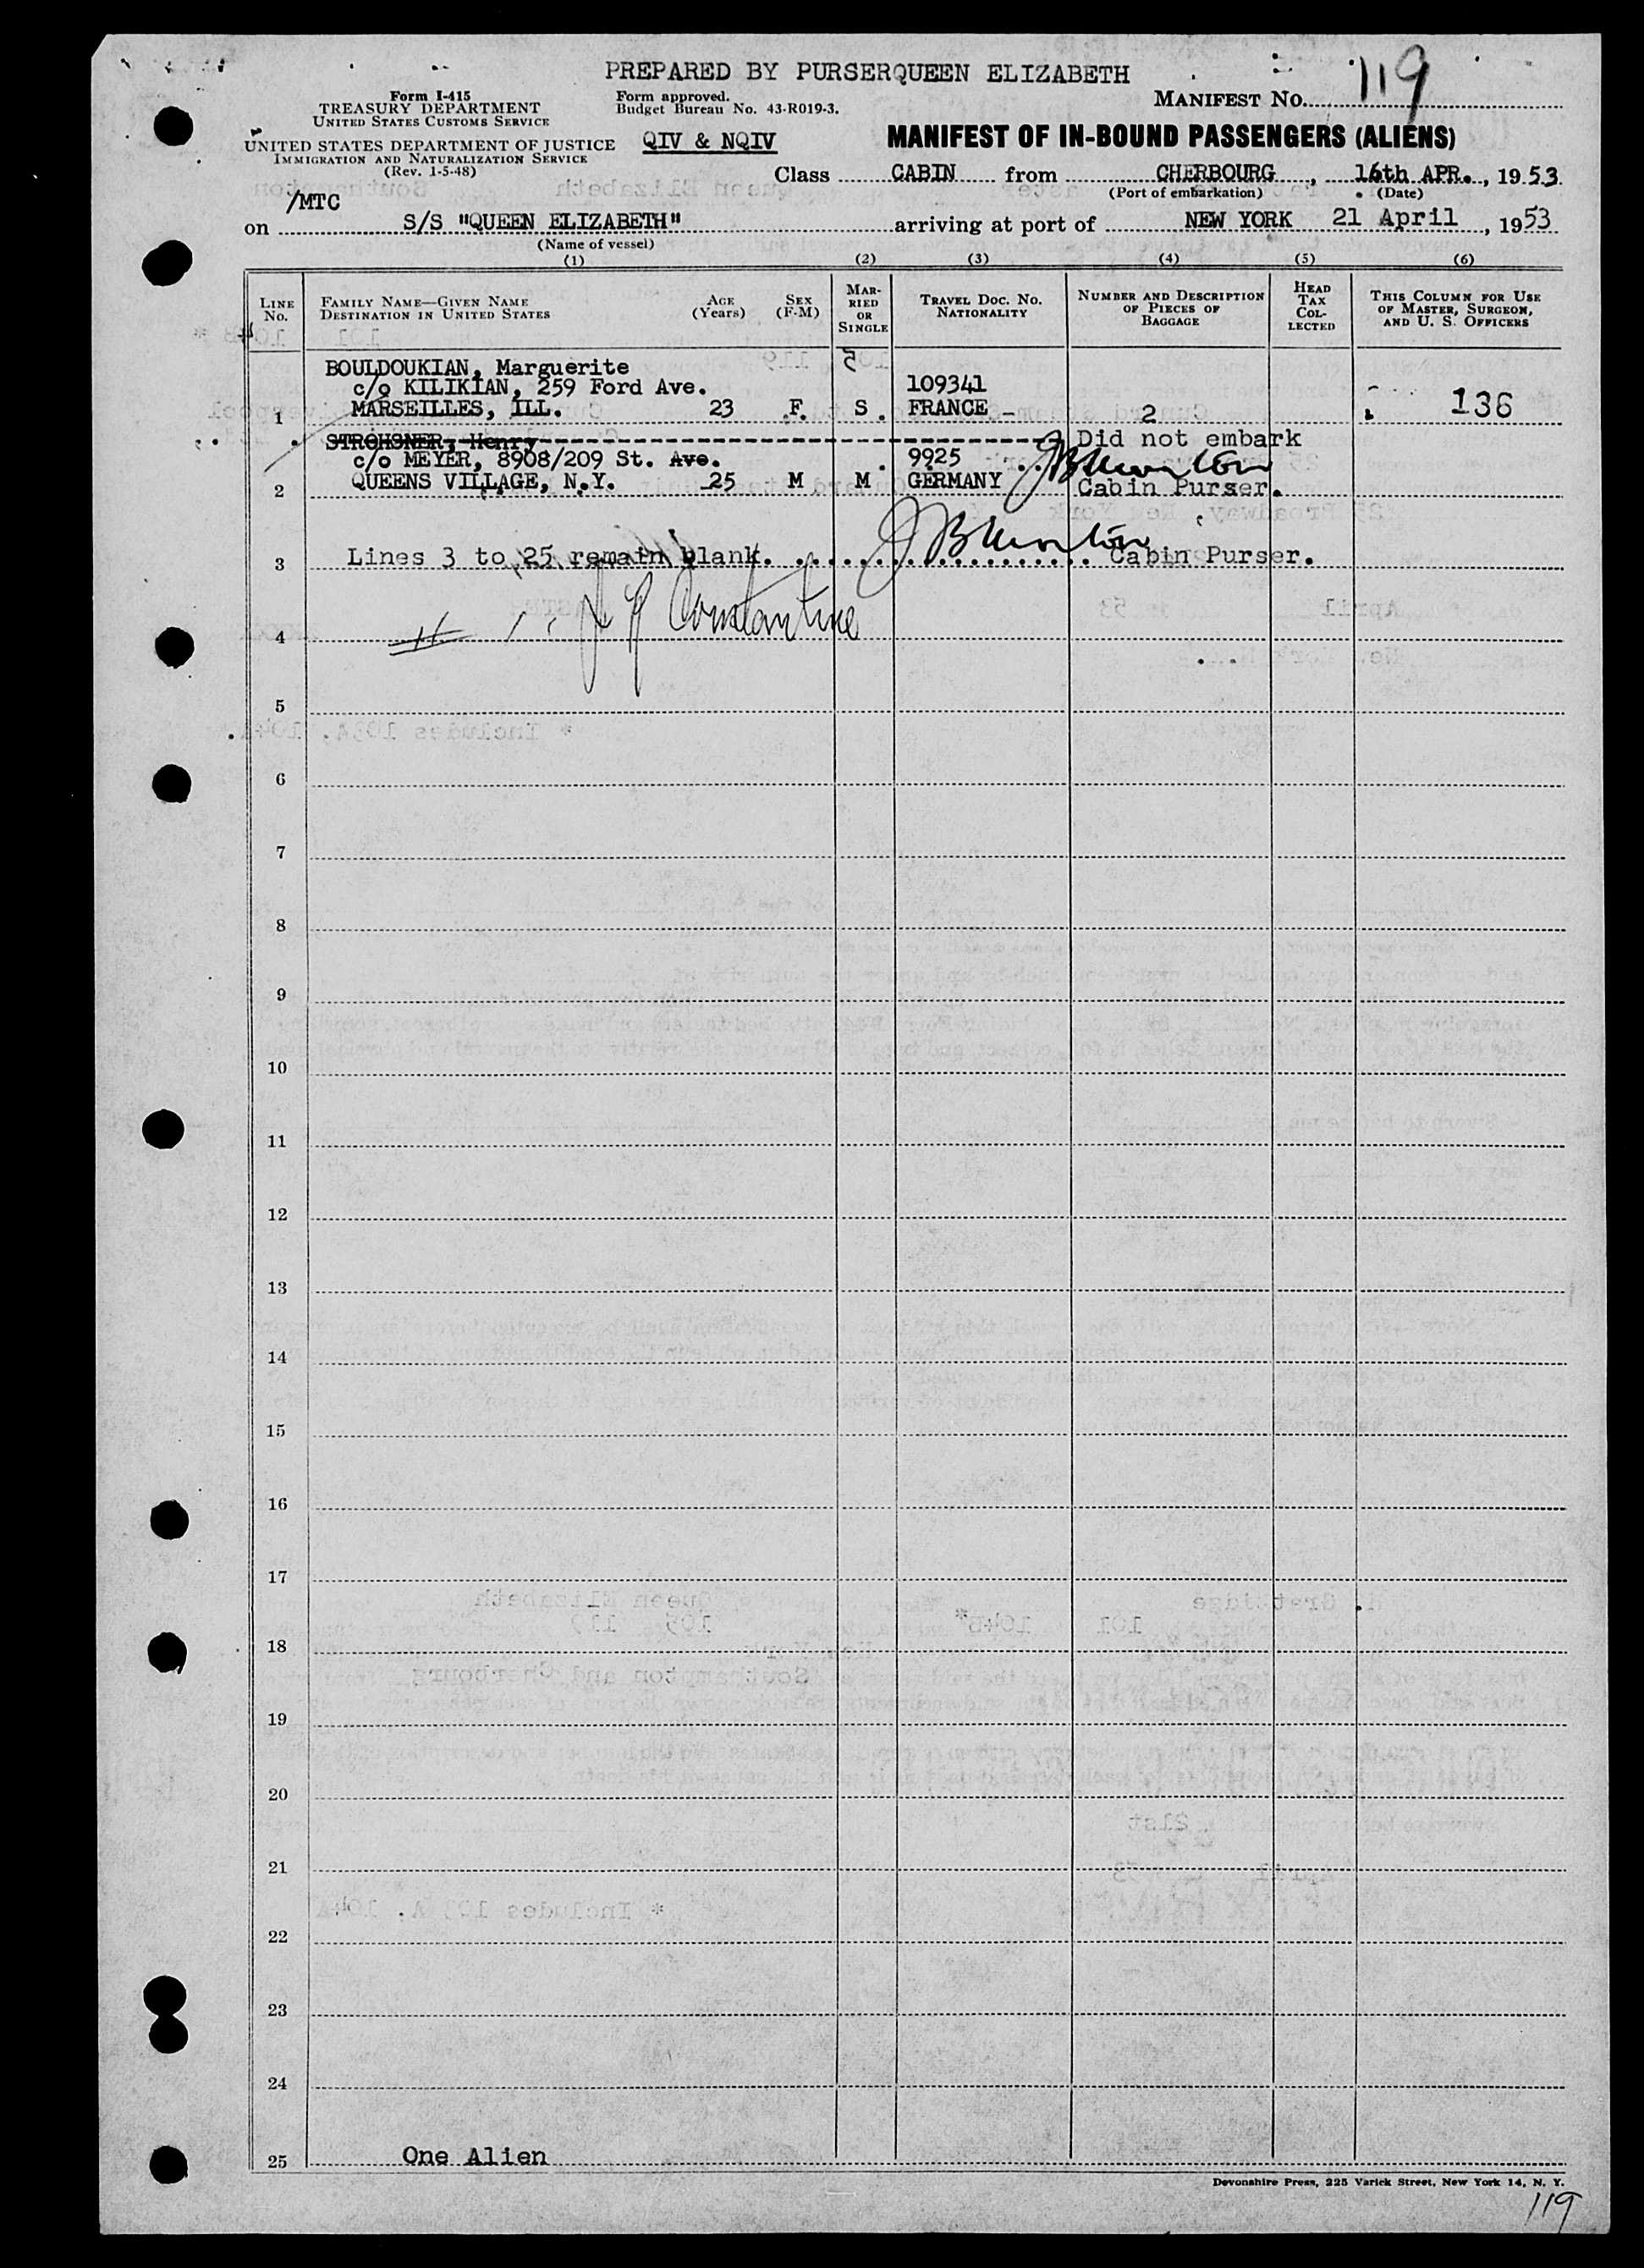 PREPARED BY PURSERQUEEN ELIZABETH
Form I-415
TREASURY DEPARTMENT
UNITED STATES CUSTOMS SERVICE
Form approved.
Budget Bureau No. 43-R019-3.
MANIFEST No. 119
UNITED STATES DEPARTMENT OF JUSTICE
IMMIGRATION AND NATURALIZATION SERVICE
(Rev. 1-5-48)
QIV & NQIV
MANIFEST OF IN-BOUND PASSENGERS (ALIENS)
Class CABIN from CHERBOURG, 16th APR., 1953.
(Port of embarkation) (Date)
/MTC
on S/S "QUEEN ELIZABETH" arriving at port of NEW YORK 21 April, 1953
(Name of vessel)
(1) (2) (3) (4) (5) (6)
LINE No.
FAMILY NAME—GIVEN NAME
DESTINATION IN UNITED STATES
AGE (Years)
SEX (F-M)
MARRIED OR SINGLE
TRAVEL DOC. NO.
NATIONALITY
NUMBER AND DESCRIPTION OF PIECES OF BAGGAGE
HEAD TAX COLLECTED
THIS COLUMN FOR USE OF MASTER, SURGEON, AND U. S. OFFICERS
BOULDOUKIAN, Marguerite
c/o KILIKIAN, 259 Ford Ave. 109341
1 MARSEILLES, ILL. 23 F. S. FRANCE - 2 136
STROHSNER, Henry Did not embark
c/o MEYER, 8908/209 St. Ave. 9925
2 QUEENS VILLAGE, N.Y. 25 M M GERMANY Cabin Purser.
3 Lines 3 to 25 remain blank. Cabin Purser.
4 Constantine
5
6
7
8
9
10
11
12
13
14
15
16
17
18
19
20
21
22
23
24
25 One Alien
Devonshire Press, 225 Varick Street, New York 14, N. Y.
119